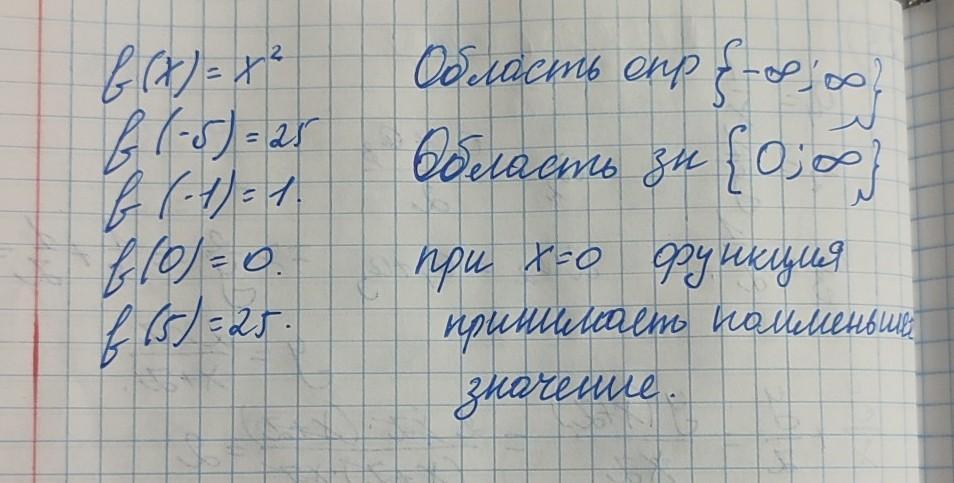 f(x) = x²
f(-5) = 25
f(-1) = 1.
f(0) = 0.
f(5) = 25.
Область опр {-∞; ∞}
Область зн {0; ∞}
при x=0 функция
принимает наименьшее
значение.